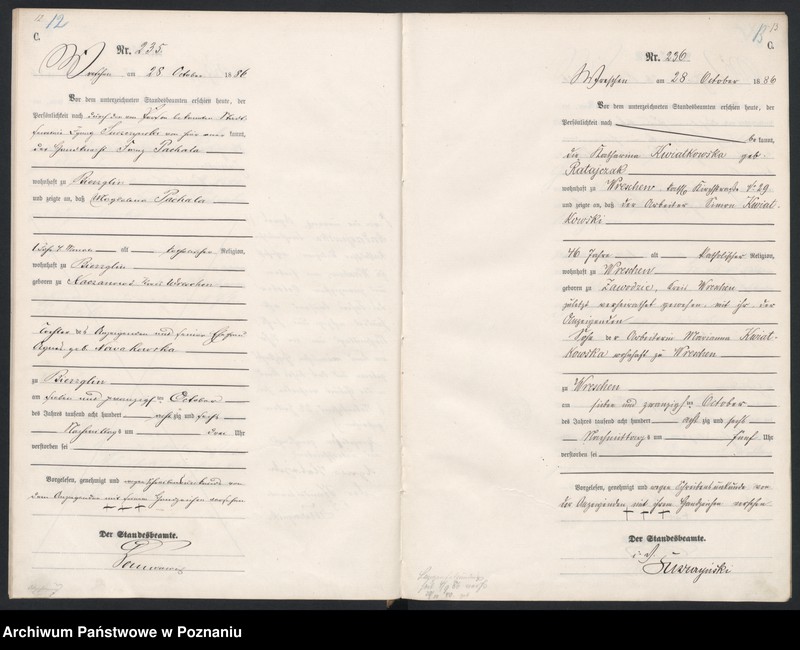 12
C.
Nr. 235.
Wreschen am 28 October 1886
Vor dem unterzeichneten Standesbeamten erschien heute, der
Persönlichkeit nach durch die von Person bekannten
kannt,
der Franz Pachala
wohnhaft zu Bierzglin
und zeigte an, daß Magdalena Pachala
alt katholischer Religion,
wohnhaft zu Bierzglin
geboren zu Kaczanowo Kreis Wreschen
Tochter des Anzeigenden und seiner Ehefrau
Agnes geb. Nowakowska
zu Bierzglin
am sieben und zwanzigsten October
des Jahres tausend acht hundert achtzig und sechs
Nachmittags um drei Uhr
verstorben sei
Vorgelesen, genehmigt und wegen Schreibensunkunde von
dem Anzeigenden mit seinem Handzeichen versehen
+++
Der Standesbeamte.
13
C.
Nr. 236.
Wreschen am 28 October 1886
Vor dem unterzeichneten Standesbeamten erschien heute, der
Persönlichkeit nach
bekannt,
die Katharina Kwiatkowska geb.
Ratajczak
wohnhaft zu Wreschen № 29
und zeigte an, daß der Arbeiter Simon Kwiat-
kowski
46 Jahre alt katholischer Religion,
wohnhaft zu Wreschen
geboren zu Zawodzie, Kreis Wreschen
zuletzt verheirathet gewesen mit ihr der
Anzeigenden
Sohn der Arbeiterin Marianna Kwiat-
kowska wohnhaft zu Wreschen
zu Wreschen
am sieben und zwanzigsten October
des Jahres tausend acht hundert achtzig und sechs
Nachmittags um fünf Uhr
verstorben sei
Vorgelesen, genehmigt und wegen Schreibensunkunde von
der Anzeigenden mit ihrem Handzeichen versehen
+++
Der Standesbeamte.
Archiwum Państwowe w Poznaniu